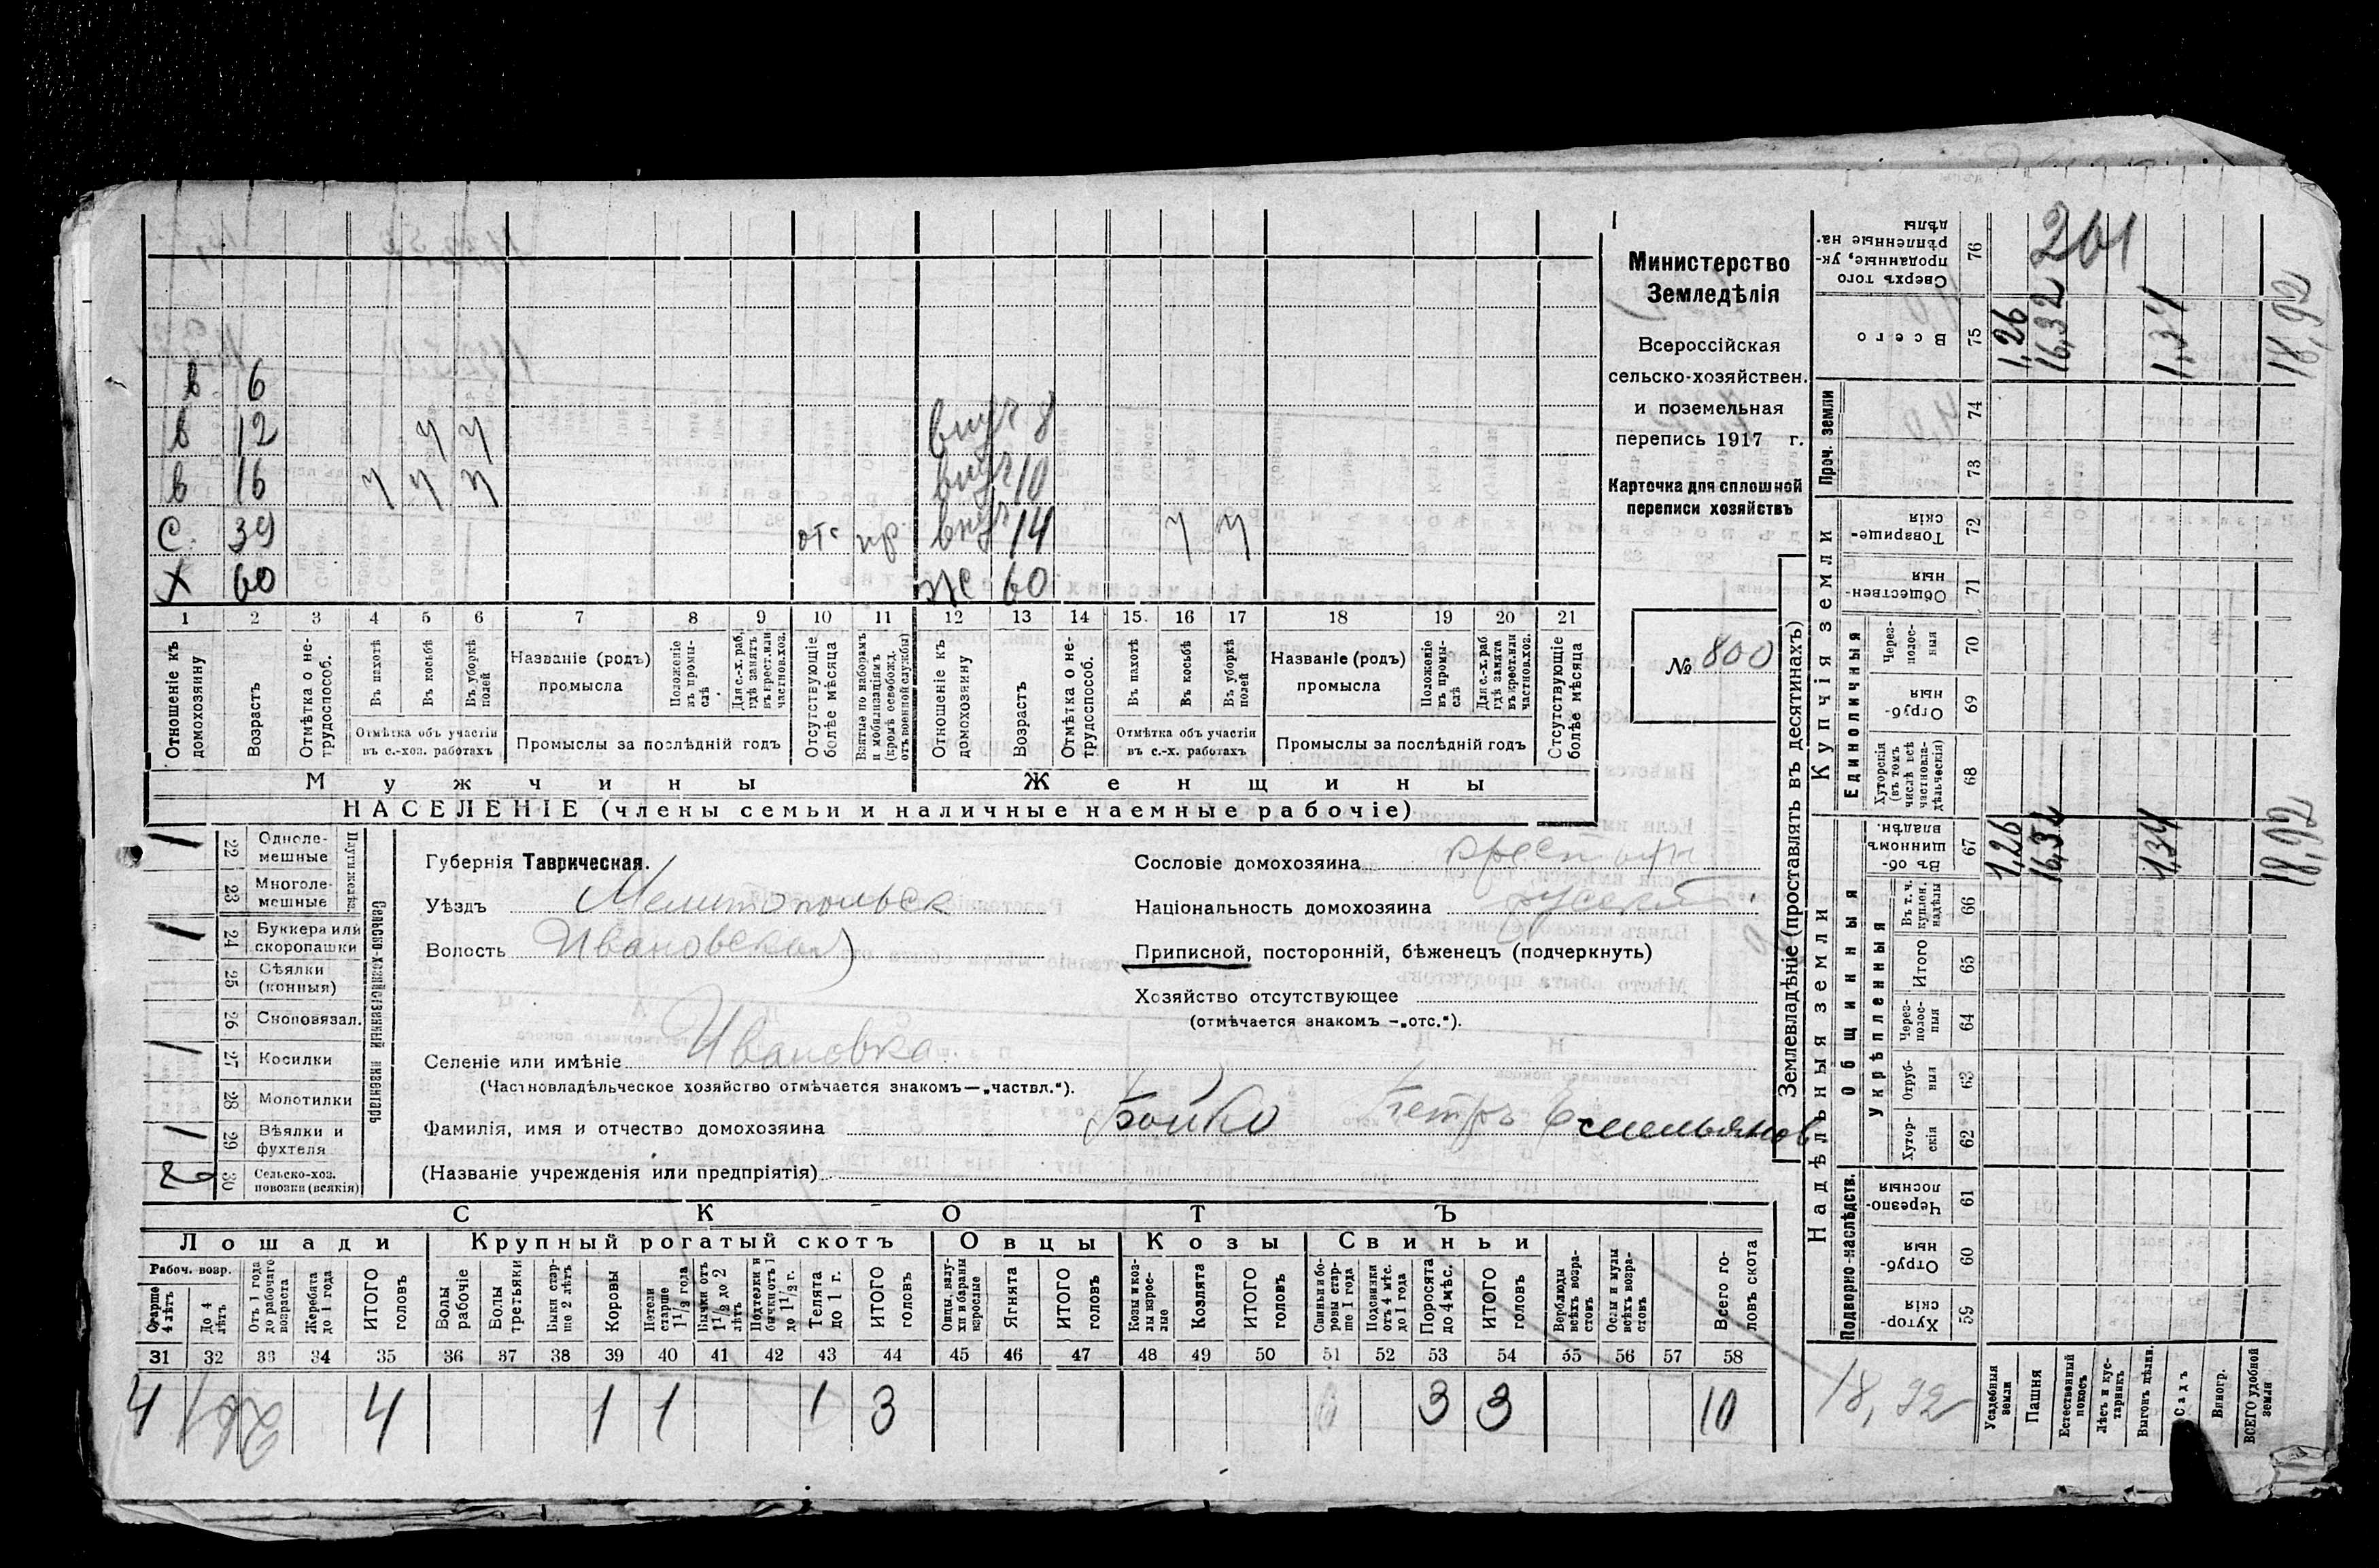 в 6
в 12 ч ч внуч 8
в 16 ч ч ч внуч 10
С. 39 отс пр. внуч 14 ч ч
Х 60 Ж 60
1 2 3 4 5 6 7 8 9 10 11 12 13 14 15. 16 17 18 19 20 21
Отношеніе къ домохозяину
Возрастъ
Отмѣтка о не-трудоспособ.
Въ пахотѣ
Въ косьбѣ
Въ уборкѣ полей
Отмѣтка объ участіи
въ с.-хоз. работахъ
Названіе (родъ)
промысла
Положеніе въ промы-слѣ
Для с.-х. раб. гдѣ занятъ въ крест. или частнов. хоз.
Промыслы за послѣдній годъ
Отсутствующіе болѣе мѣсяца
Взятые по наборамъ и мобилизаціямъ (кромѣ освобожд. отъ военной службы)
Отношеніе къ домохозяину
Возрастъ
Отмѣтка о не-трудоспособ.
Въ пахотѣ
Въ косьбѣ
Въ уборкѣ полей
Отмѣтка объ участіи
въ с.-х. работахъ
Названіе (родъ)
промысла
Положеніе въ промы-слѣ
Для с.-х. раб гдѣ занята въ крест. или частнов. хоз.
Промыслы за послѣдній годъ
Отсутствующіе болѣе мѣсяца
Мужчины Женщины
НАСЕЛЕНІЕ (члены семьи и наличные наемные рабочіе)
Министерство
Земледѣлія
Всероссійская
сельско-хозяйствен.
и поземельная
перепись 1917 г.
Карточка для сплошной
переписи хозяйствъ
№ 800
Сельско-хозяйственный инвентарь
Плуги желѣз.
1 22 Одноле-мешные
23 Многоле-мешные
1 24 Буккера или скоропашки
25 Сѣялки (конныя)
26 Сноповязал.
1 27 Косилки
28 Молотилки
1 29 Вѣялки и фухтеля
2 30 Сельско-хоз. повозки (всякія)
Губернія Таврическая.
Уѣздъ Мелитопольск
Волость Ивановская
Селеніе или имѣніе Ивановка
(Частновладѣльческое хозяйство отмѣчается знакомъ—„частвл.“).
Фамилія, имя и отчество домохозяина Бойко Петръ Емельянов
(Названіе учрежденія или предпріятія)
Сословіе домохозяина крестьян
Національность домохозяина русский
Приписной, посторонній, бѣженецъ (подчеркнуть)
Хозяйство отсутствующее
(отмѣчается знакомъ -„отс.“).
СКОТЪ
Лошади Крупный рогатый скотъ Овцы Козы Свиньи
Рабоч. возр.
Старше 4 лѣтъ
До 4 лѣтъ
Отъ 1 года до рабочаго возраста
Жеребята до 1 года
ИТОГО головъ
Волы рабочіе
Волы третьяки
Быки стар-ше 2 лѣтъ
Коровы
Нетели старше 1 1/2 года
Бычки отъ 1 1/2 до 2 лѣтъ
Подтелки и бычки отъ 1 до 1 1/2 г.
Телята до 1 г.
ИТОГО головъ
Овцы, валу-хи и бараны взрослые
Ягнята
ИТОГО головъ
Козы и коз-лы взрос-лые
Козлята
ИТОГО головъ
Свиньи и бо-ровы стар-ше 1 года
Подсвинки отъ 4 мѣс. до 1 года
Поросята до 4 мѣс.
ИТОГО головъ
Верблюды всѣхъ возра-стовъ
Ослы и мулы всѣхъ возра-стовъ
Всего го-ловъ скота
31 32 33 34 35 36 37 38 39 40 41 42 43 44 45 46 47 48 49 50 51 52 53 54 55 56 57 58
4 4 1 1 1 3 3 3 10
Землевладѣніе (проставлять въ десятинахъ)
Надѣльныя земли Купчія земли Проч. земли
Подворно-наслѣдств.
Общинныя
Укрѣпленныя
Единоличныя
Сверхъ того проданные, ук-рѣпленные на-дѣлы 76 201
Всего 75 1,26 16,32 1,34 18,92
74
73
Товарище-скія 72
Обществен-ныя 71
Через-полос-ныя 70
Отруб-ныя 69
Хуторскія (въ томъ числѣ всѣ частновла-дѣльческія) 68
Въ об-щинномъ владѣн. 67 1,26 16,32 1,34 18,92
Въ т. ч. куплен. надѣлы 66
Итого 65
Через-полос-ныя 64
Отруб-ныя 63
Хутор-скія 62
Черезпо-лосныя 61
Отруб-ныя 60
Хутор-скія 59
18,92
Усадебныя земли
Пашня
Естественный покосъ
Лѣсъ и кус-тарникъ
Выгонъ дѣлин.
Садъ
Виногр.
ВСЕГО удобной земли